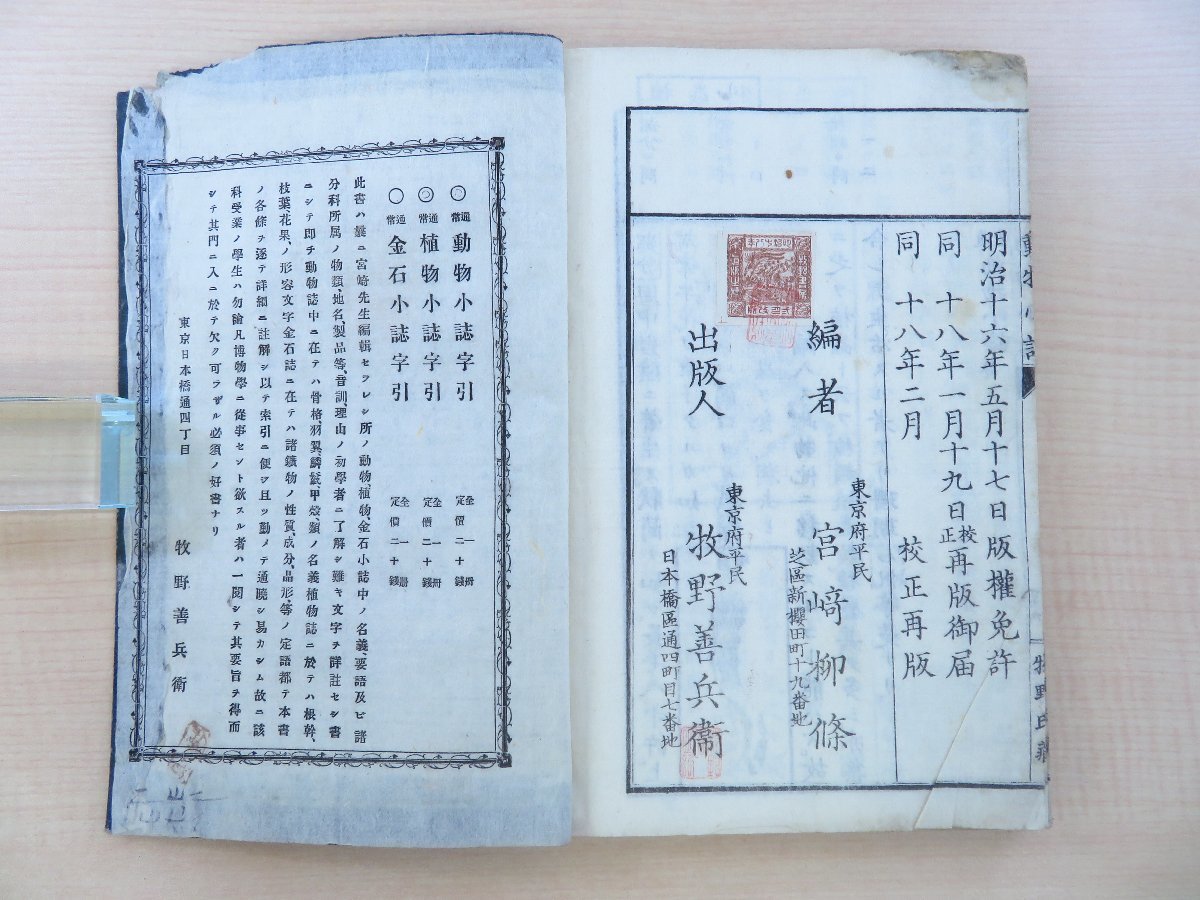 明治十六年五月十七日版權免許
同 十八年一月十九日校正再版御届
同 十八年二月 校正再版
編者
東京府平民
宮﨑柳條
芝區新櫻田町十九番地
出版人
東京府平民
牧野善兵衞
日本橋區通四町目七番地
牧野氏藏
◎通常動物小誌字引 全一冊 定價二十錢
◎通常植物小誌字引 全一冊 定價二十錢
○通常金石小誌字引 全一冊 定價二十錢
此書ハ曩ニ宮﨑先生編輯セラレシ所ノ動物、植物、金石小誌中ノ名義、要語及ビ諸
分科所属ノ物類、地名製品等、音訓、理由ノ初學者ニ了解シ難キ文字ヲ詳註セシ書
ニシテ即チ動物誌中ニ在テハ骨格羽翼、鱗鬣甲殻類ノ名義植物誌ニ於テハ根幹、
枝葉花果、ノ形容文字金石誌ニ在テハ諸鑛物ノ性質、成分、品形、等ノ定語都テ本書
ノ各條ヲ逐テ詳細ニ註解シ以テ索引ニ便シ且ツ勤メテ通曉シ易カシム故ニ該
科受業ノ學生ハ勿論凡博物學ニ從事セント欲スル者ハ一閲シテ其要旨ヲ得而
シテ其門ニ入ニ於テ欠ク可ラザル必須ノ好書ナリ
東京日本橋通四丁目
牧野善兵衛